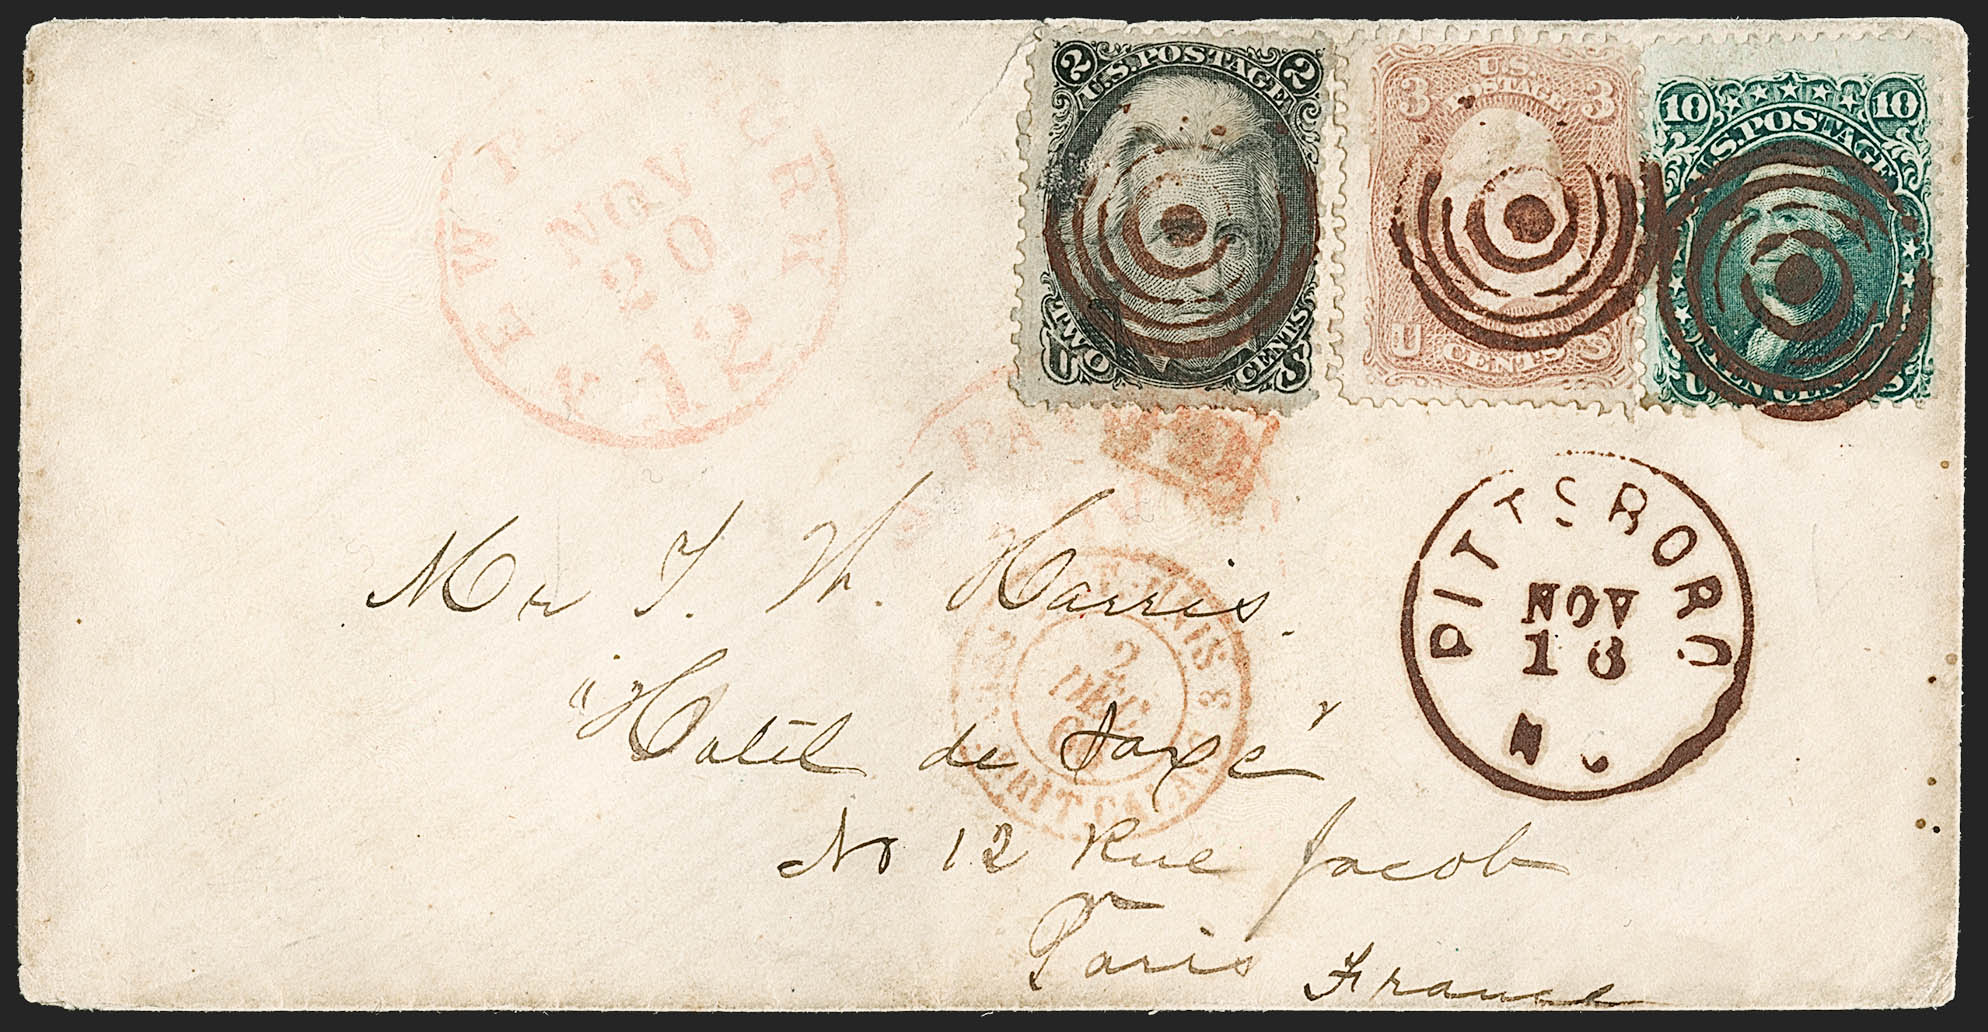 NEW YORK
NOV
20
12
2 U.S. POSTAGE 2
TWO CENTS
U S
3 U.S. 3
POSTAGE
U CENTS S
10 10
U.S. POSTAGE
TEN CENTS
U S
PITTSBORO
NOV
18
N C
Mr T. W. Harris.
2
DEC
CALAIS
"Hotel de Saxe"
No 12 Rue Jacob
Paris France